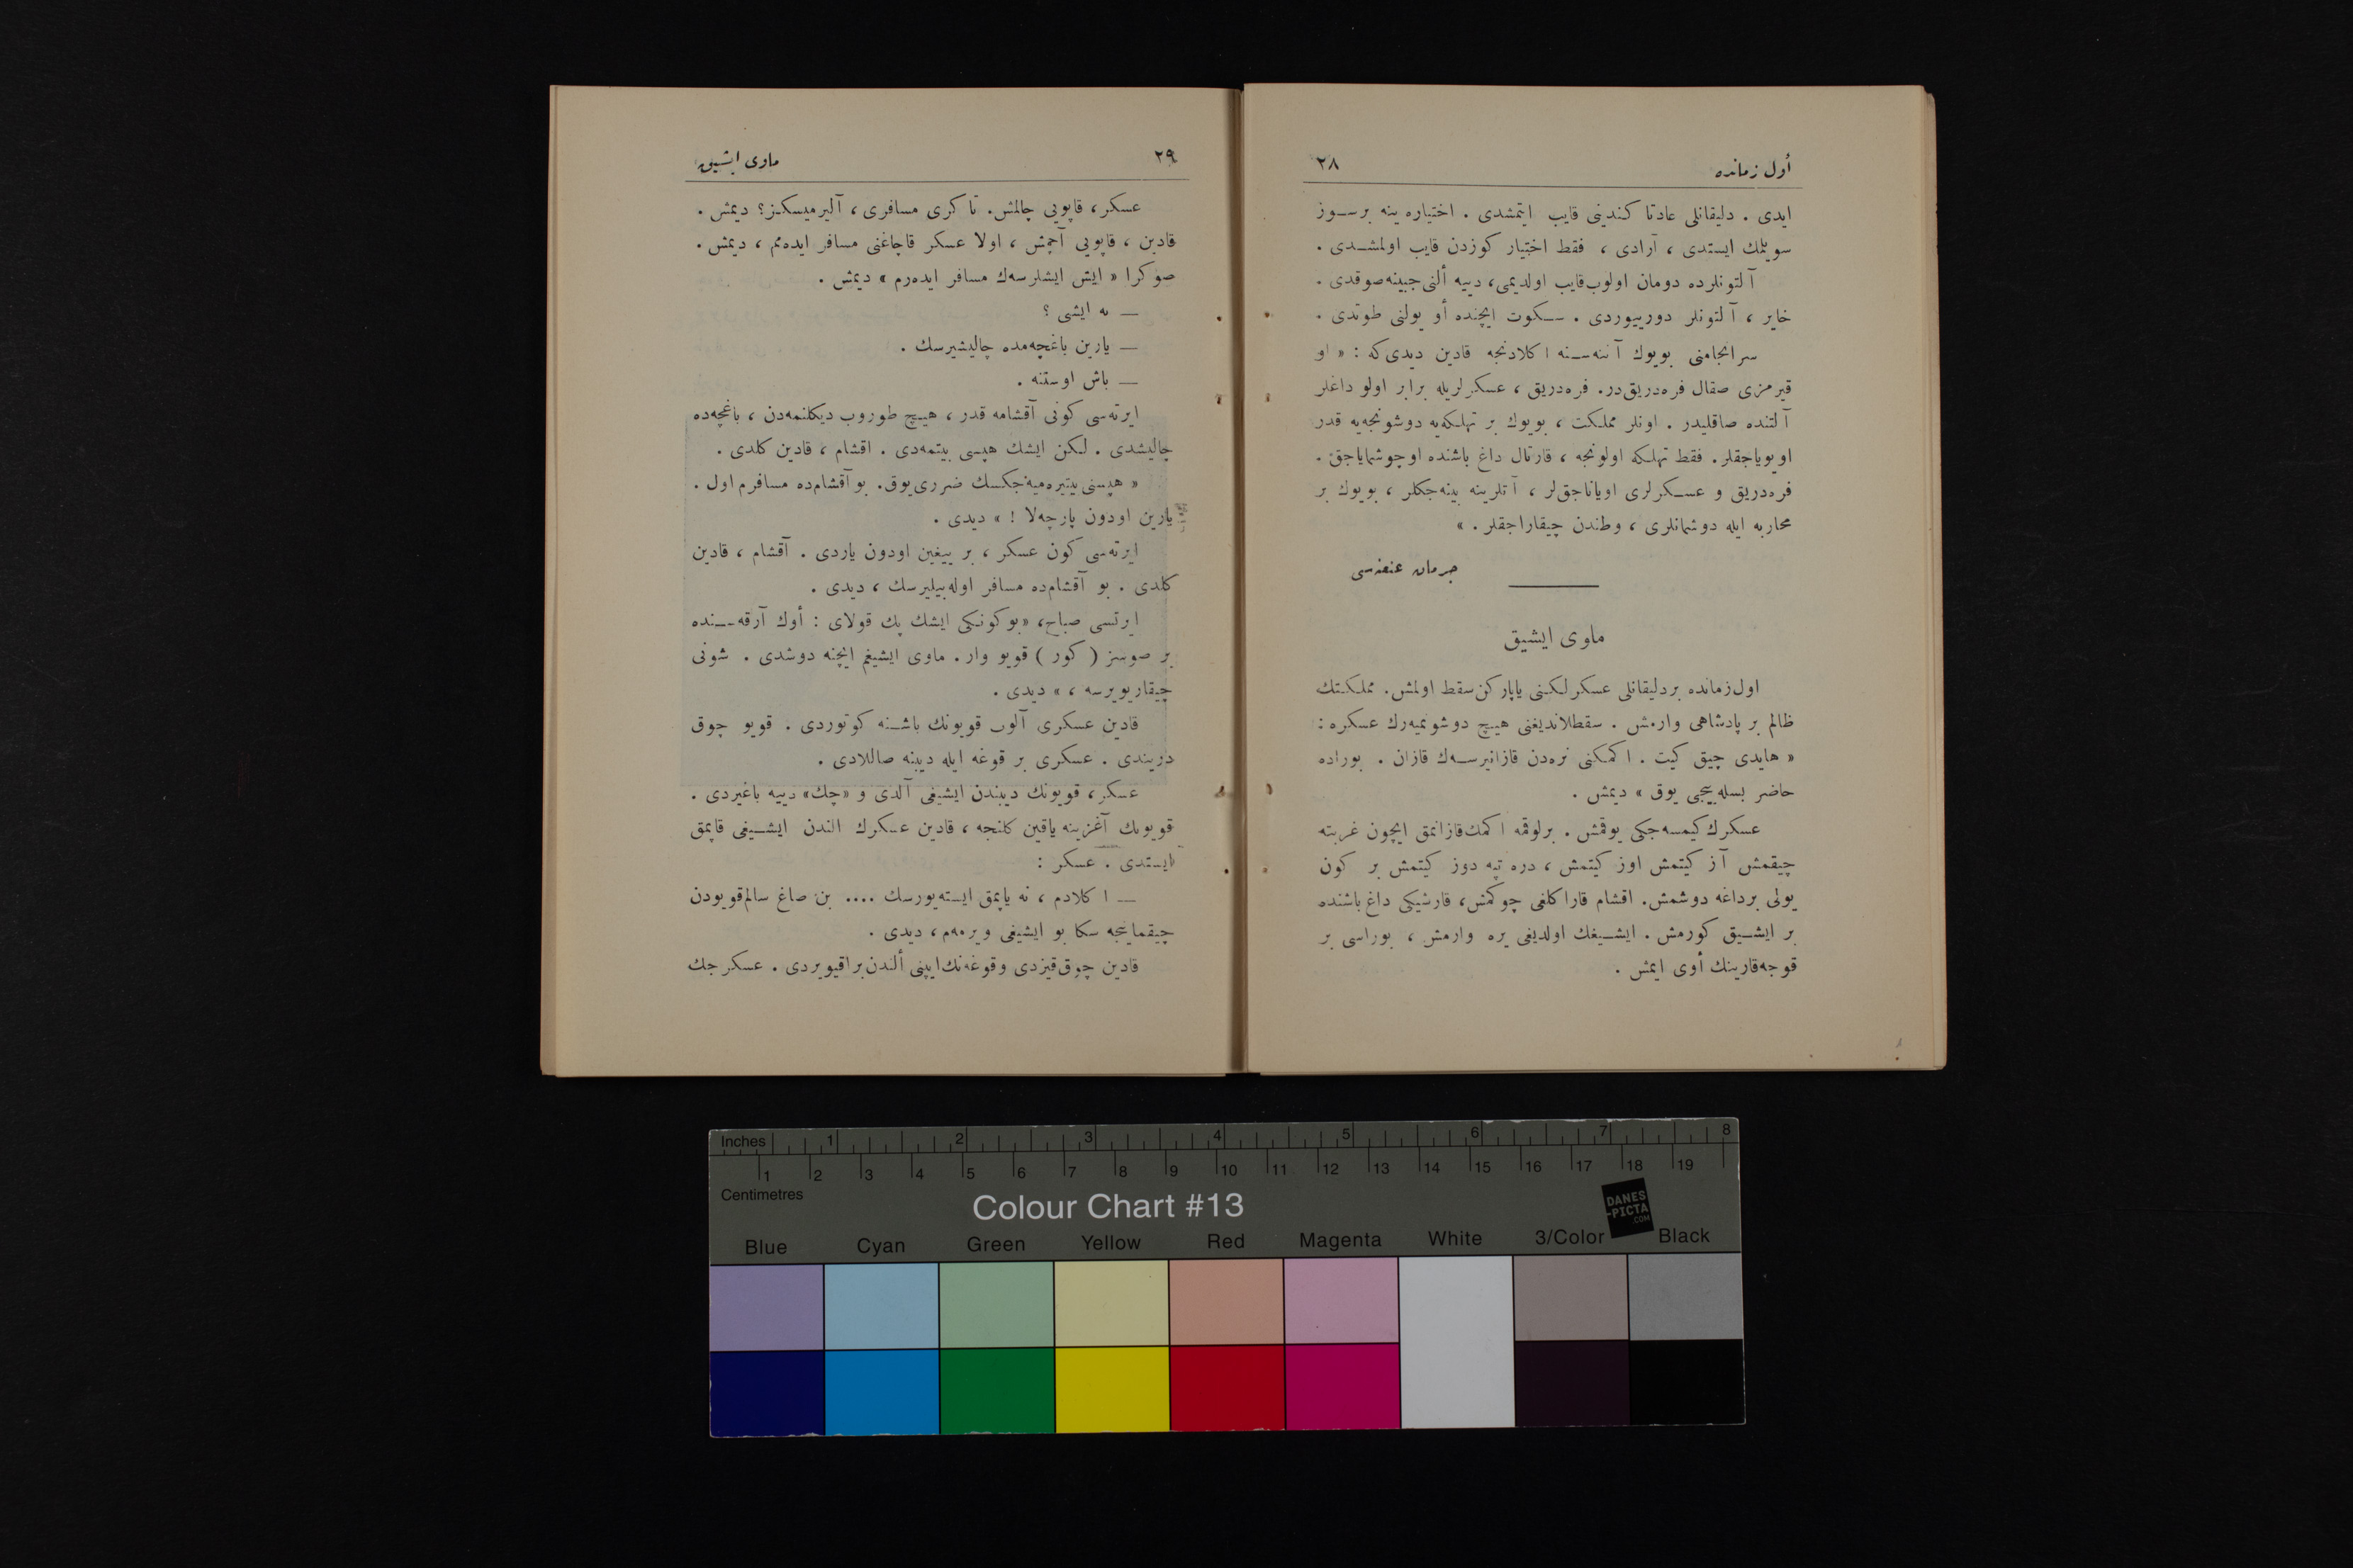 أول زمانده
٢٨
ایدی . دلیقانلی عادتا کندینی قایب ایتمشدی . اختیاره ینه برسوز
سویلمك ایستدی ، آرادی ، فقط اختیار کوزدن قایب اولمشدی .
آلتونلرده دومان اولوب قایب اولدیمی، دییه ألنی جبینه صوقدی .
خایر ، آلتونلر دورییوردی . سکوت ایچنده أو یولنی طوتدی .
سرانجامنی بویوك آننه‌سنه اکلادنجه قادین دیدی که : « او
قیرمزی صقال فره‌دریق‌در. فره‌دریق ، عسکرلریله برابر اولو داغلر
آلتنده صاقلیدر . اونلر مملکت ، بویوك بر تهلکه‌یه دوشونجه‌یه قدر
اویویاجقلر. فقط تهلکه اولونجه ، قارتال داغ باشنده اوچوشمایاجق .
فره‌دریق و عسکرلری اویاناجق‌لر ، آتلرینه بینه‌جکلر ، بویوك بر
محاربه ایله دوشمانلری ، وطندن چیقاراجقلر . »
جرمان عنعنه‌سی
ماوی ایشیق
اول زمانده بردلیقانلی عسکرلکنی یاپارکن سقط اولمش. مملکتك
ظالم بر پادشاهی وارمش . سقطلاندیغنی هیچ دوشونمیه‌رك عسکره :
« هایدی چیق کیت . اکمکنی نره‌دن قازانیرسه‌ك قازان . بوراده
حاضر بسله‌ییجی یوق » دیمش .
عسکرك کیمسه‌جکی یوقمش . برلوقمه اکمك قازانمق ایچون غربته
چیقمش آز کیتمش اوز کیتمش ، دره تپه دوز کیتمش بر کون
یولی برداغه دوشمش. اقشام قاراکلغی چوکمش، قارشیکی داغ باشنده
بر ایشیق کورمش . ایشیغك اولدیغی یره وارمش ، بوراسی بر
قوجه‌قارینك أوی ایمش .
٢٩
ماوی ایشیق
عسکر ، قاپویی چالمش. تاکری مسافری ، آلیرمیسکز؟ دیمش .
قادین ، قاپویی آچمش ، اولا عسکر قاچاغنی مسافر ایده‌مم ، دیمش .
صوکرا « ایش ایشلرسه‌ك مسافر ایده‌رم » دیمش .
— نه ایشی ؟
— یارین باغچه‌مده چالیشیرسك .
— باش اوستنه .
ایرته‌سی کونی آقشامه قدر ، هیچ طوروب دیکلنمه‌دن ، باغچه‌ده
چالیشدی . لکن ایشك هپسی بیتمه‌دی . اقشام ، قادین کلدی .
« هپسنی بیتیره‌میه‌جکسك ضرری یوق. بو آقشام‌ده مسافرم اول .
یارین اودون پارچه‌لا ! » دیدی .
ایرته‌سی کون عسکر ، بر ییغین اودون یاردی . آقشام ، قادین
کلدی . بو آقشام‌ده مسافر اوله‌بیلیرسك ، دیدی .
ایرتسی صباح، «بوکونکی ایشك پك قولای : أوك آرقه‌سنده
بر صوسز ( کور ) قویو وار. ماوی ایشیغم ایچنه دوشدی . شونی
چیقاریویرسه ، » دیدی .
قادین عسکری آلوب قویونك باشنه کوتوردی . قویو چوق
دریندی . عسکری بر قوغه ایله دیبنه صاللادی .
عسکر، قویونك دیبندن ایشیغی آلدی و «چك» دییه باغیردی .
قویونك آغزینه یاقین کلنجه ، قادین عسکرك الندن ایشیغی قاپمق
ایستدی . عسکر :
— اکلادم ، نه یاپمق ایسته‌یورسك .... بن صاغ سالم قویودن
چیقماینجه سکا بو ایشیغی ویرمه‌م ، دیدی .
قادین چوق قیزدی وقوغه‌نك ایپنی ألندن براقیویردی . عسکرجك
Inches 1 2 3 4 5 6 7 8
1 2 3 4 5 6 7 8 9 10 11 12 13 14 15 16 17 18 19
Centimetres
Colour Chart #13
DANES
-PICTA
.COM
Blue Cyan Green Yellow Red Magenta White 3/Color Black